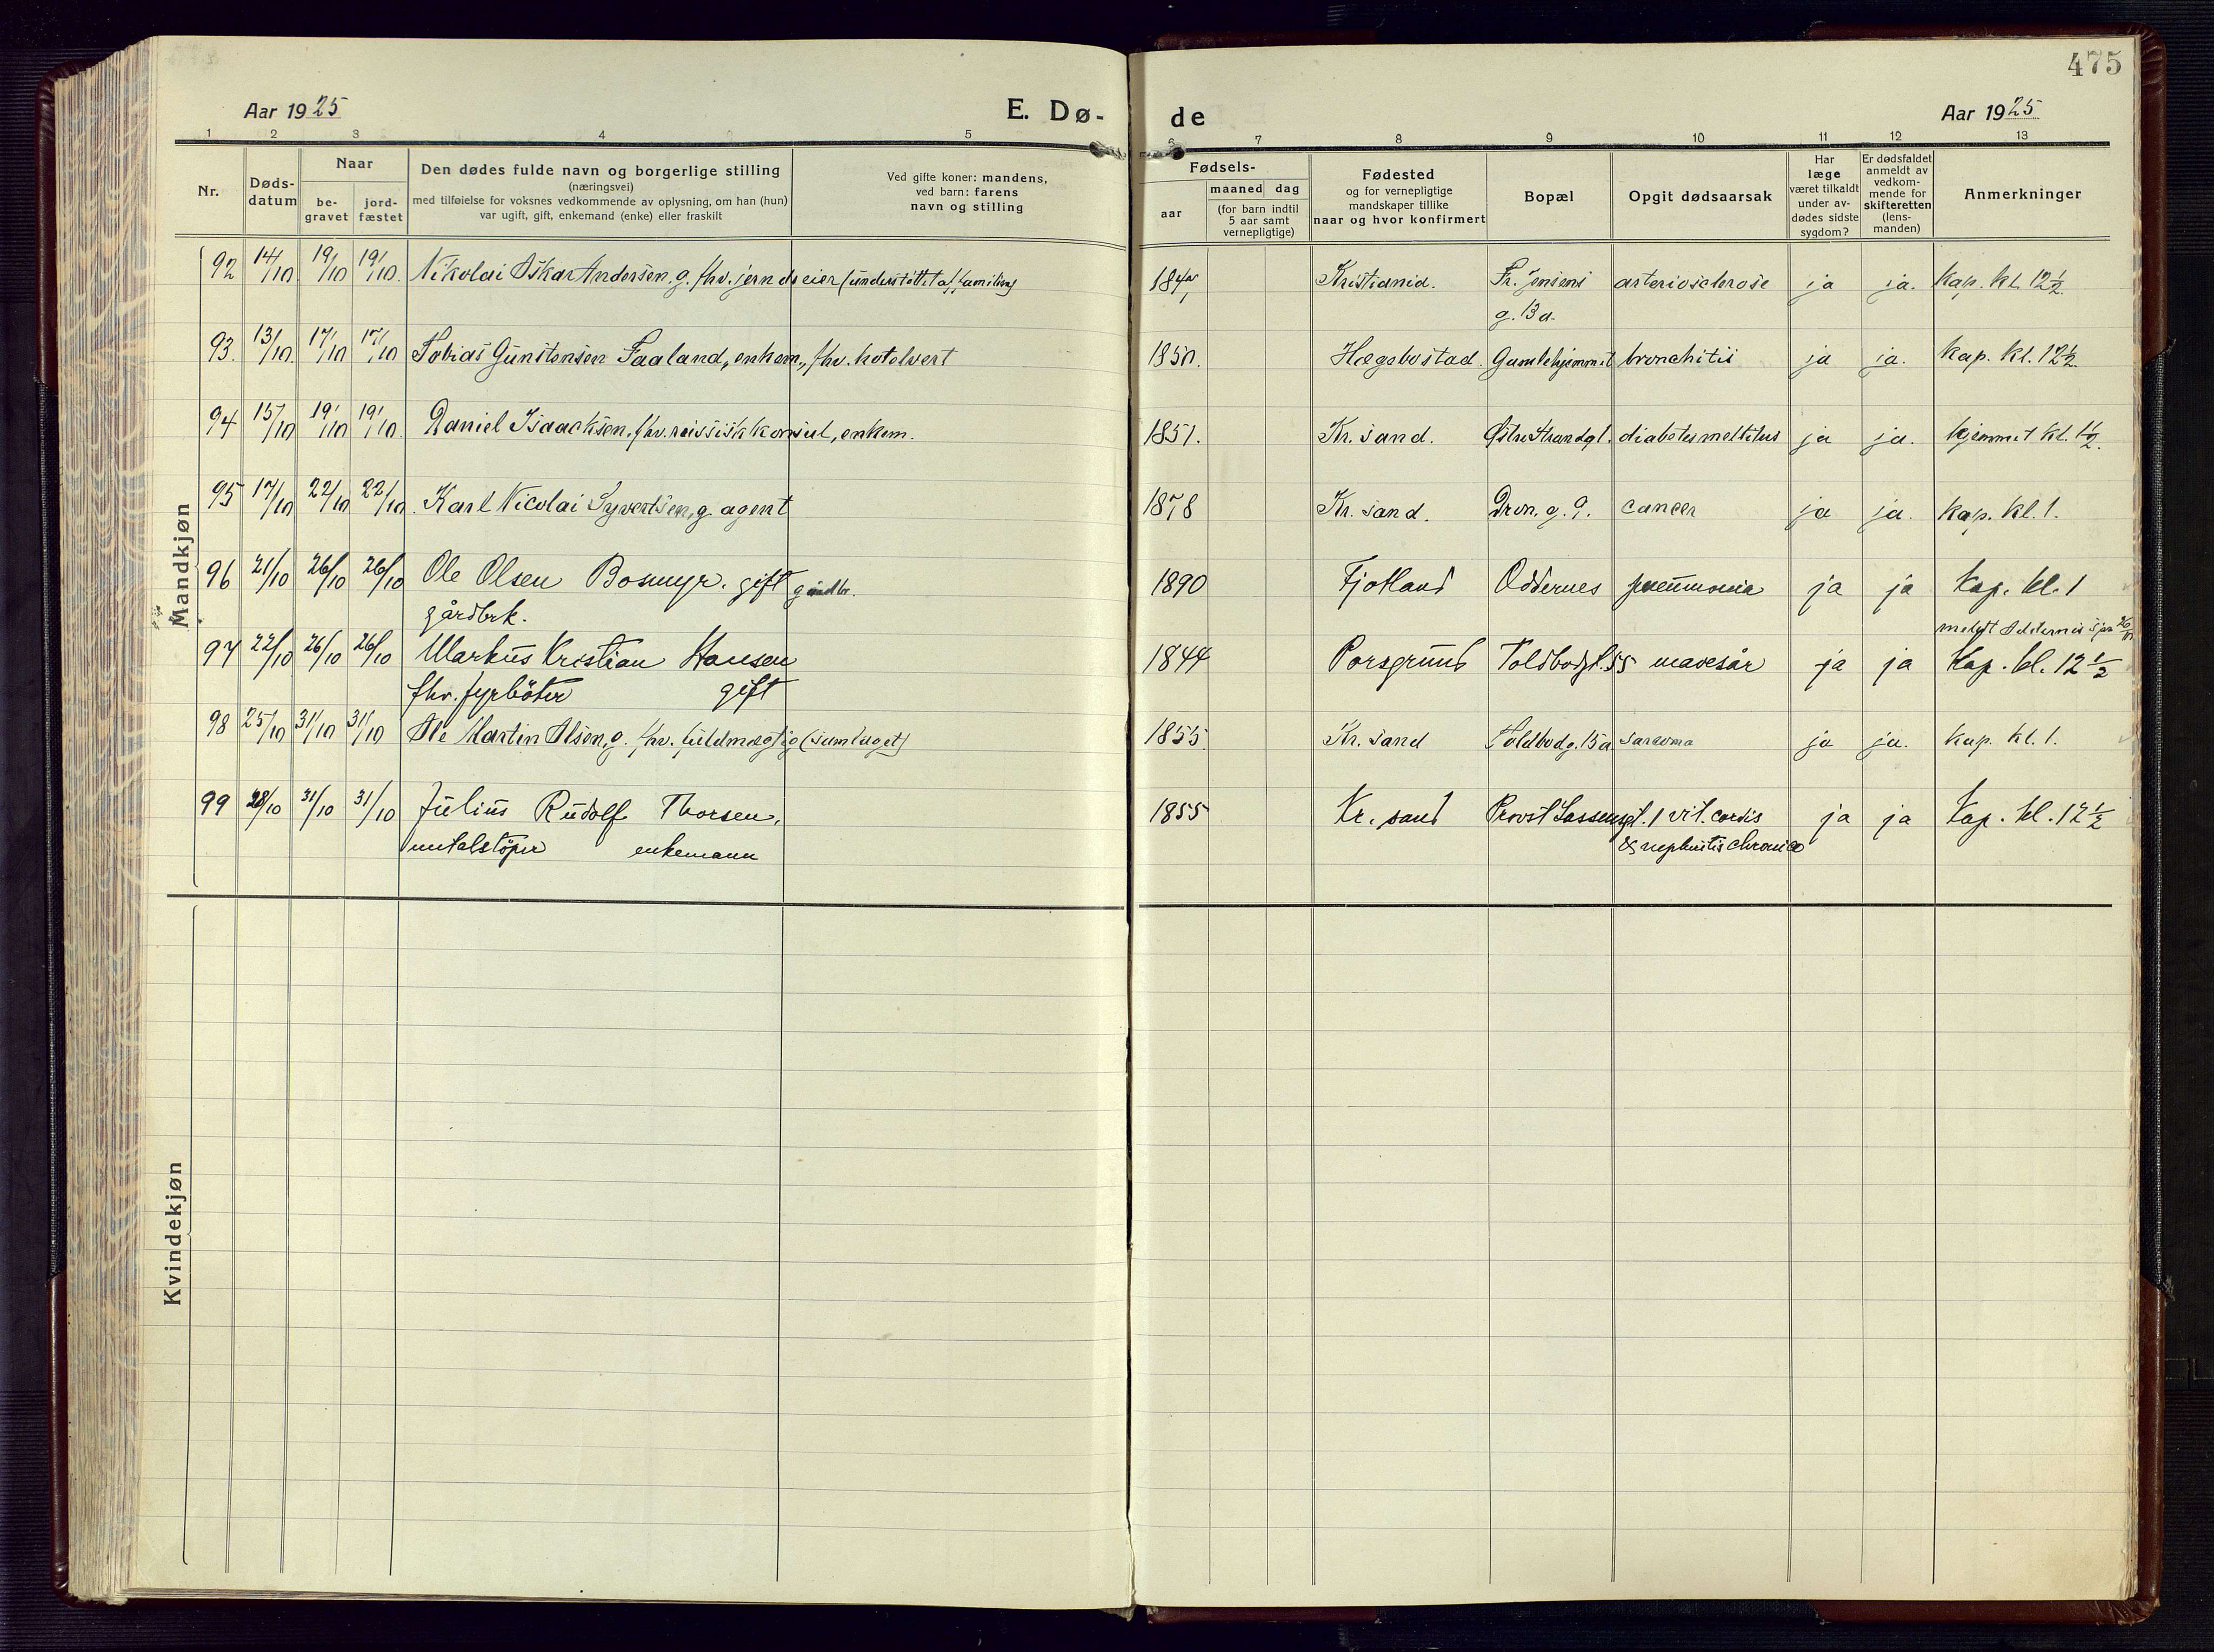 475
Aar 1925
E. Dø-
de
Aar 1925
1 2 3 4 5 6 7 8 9 10 11 12 13
Nr.
Døds-
datum
Naar
be-
gravet
jord-
fæstet
Den dødes fulde navn og borgerlige stilling
(næringsvei)
med tilføielse for voksnes vedkommende av oplysning, om han (hun)
var ugift, gift, enkemand (enke) eller fraskilt
Ved gifte koner: mandens,
ved barn: farens
navn og stilling
Fødsels-
aar
maaned dag
(for barn indtil
5 aar samt
vernepligtige)
Fødested
og for vernepligtige
mandskaper tillike
naar og hvor konfirmert
Bopæl
Opgit dødsaarsak
Har
læge
været tilkaldt
under av-
dødes sidste
sygdom?
Er dødsfaldet
anmeldt av
vedkom-
mende for
skifteretten
(lens-
manden)
Anmerkninger
Mandkjøn
92 14/10 19/10 19/10 Nikolai Oskar Andersen, g. fhv. jern dreier (understøttet af familien) Kristiania. Fr. Jensens arteriosclerose ja ja. Kap. kl. 12 1/2
g. 13a
93. 13/10 17/10 17/10 Tobias Gunstensen Faaland, enkem., fhv. hotelvert 1850. Hægebostad. Gamlehjemmet bronchitis ja ja. Kap. kl. 12 1/2
94 15/10 19/10 19/10 Daniel Isaachsen, fhv. russisk konsul, enkem. 1851. Kr.sand. Østre Strandgt. diabetes mellitus ja ja. hjemmet kl. 1 1/2
95 17/10 22/10 22/10 Karl Nicolai Syvertsen, g. agent 1878 Kr.sand. Dron. g. 9. cancer ja ja. Kap. kl. 1.
96 21/10 26/10 26/10 Ole Olsen Bosmyr. gift 1890 Fjotland Oddernes pneumonia ja ja Kap. kl. 1
gårdbrk.
meldt Oddernes
97 22/10 26/10 26/10 Markus Kristian Hansen 1844 Porsgrund Toldbodgt. 55 mavesår ja ja Kap. kl. 12 1/2
fhv. fyrbøter gift
98 25/10 31/10 31/10 Ole Martin Olsen, g. fhv. fuldmægtig (samlaget) 1855. Kr.sand Toldbodg. 15a sarcoma ja ja. Kap. kl. 1.
99 28/10 31/10 31/10 Julius Rudolf Thorsen, 1855 Kr.sand Provst Lassensgt. 1 vit. cordis ja ja Kap. kl. 12 1/2
metalstøper enkemann & nephritis chronica
Kvindekjøn